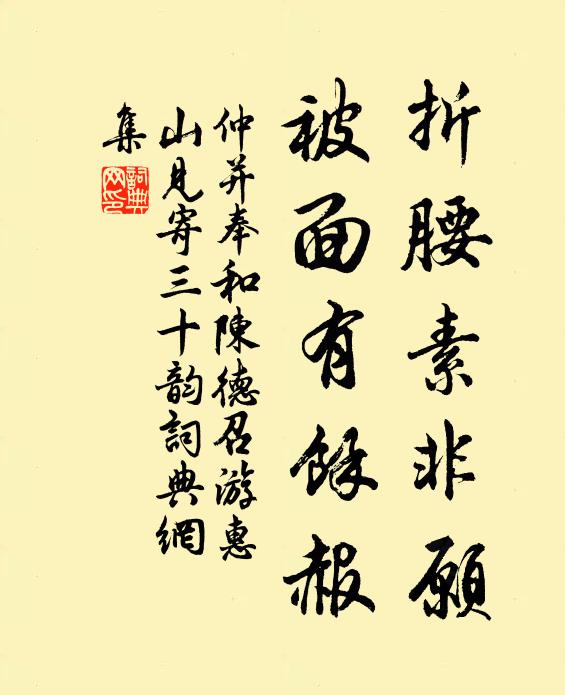 折腰素非願
被面有餘赧
仲并奉和陳德召游惠
山見寄三十韵詞典網
集
詞典
网印